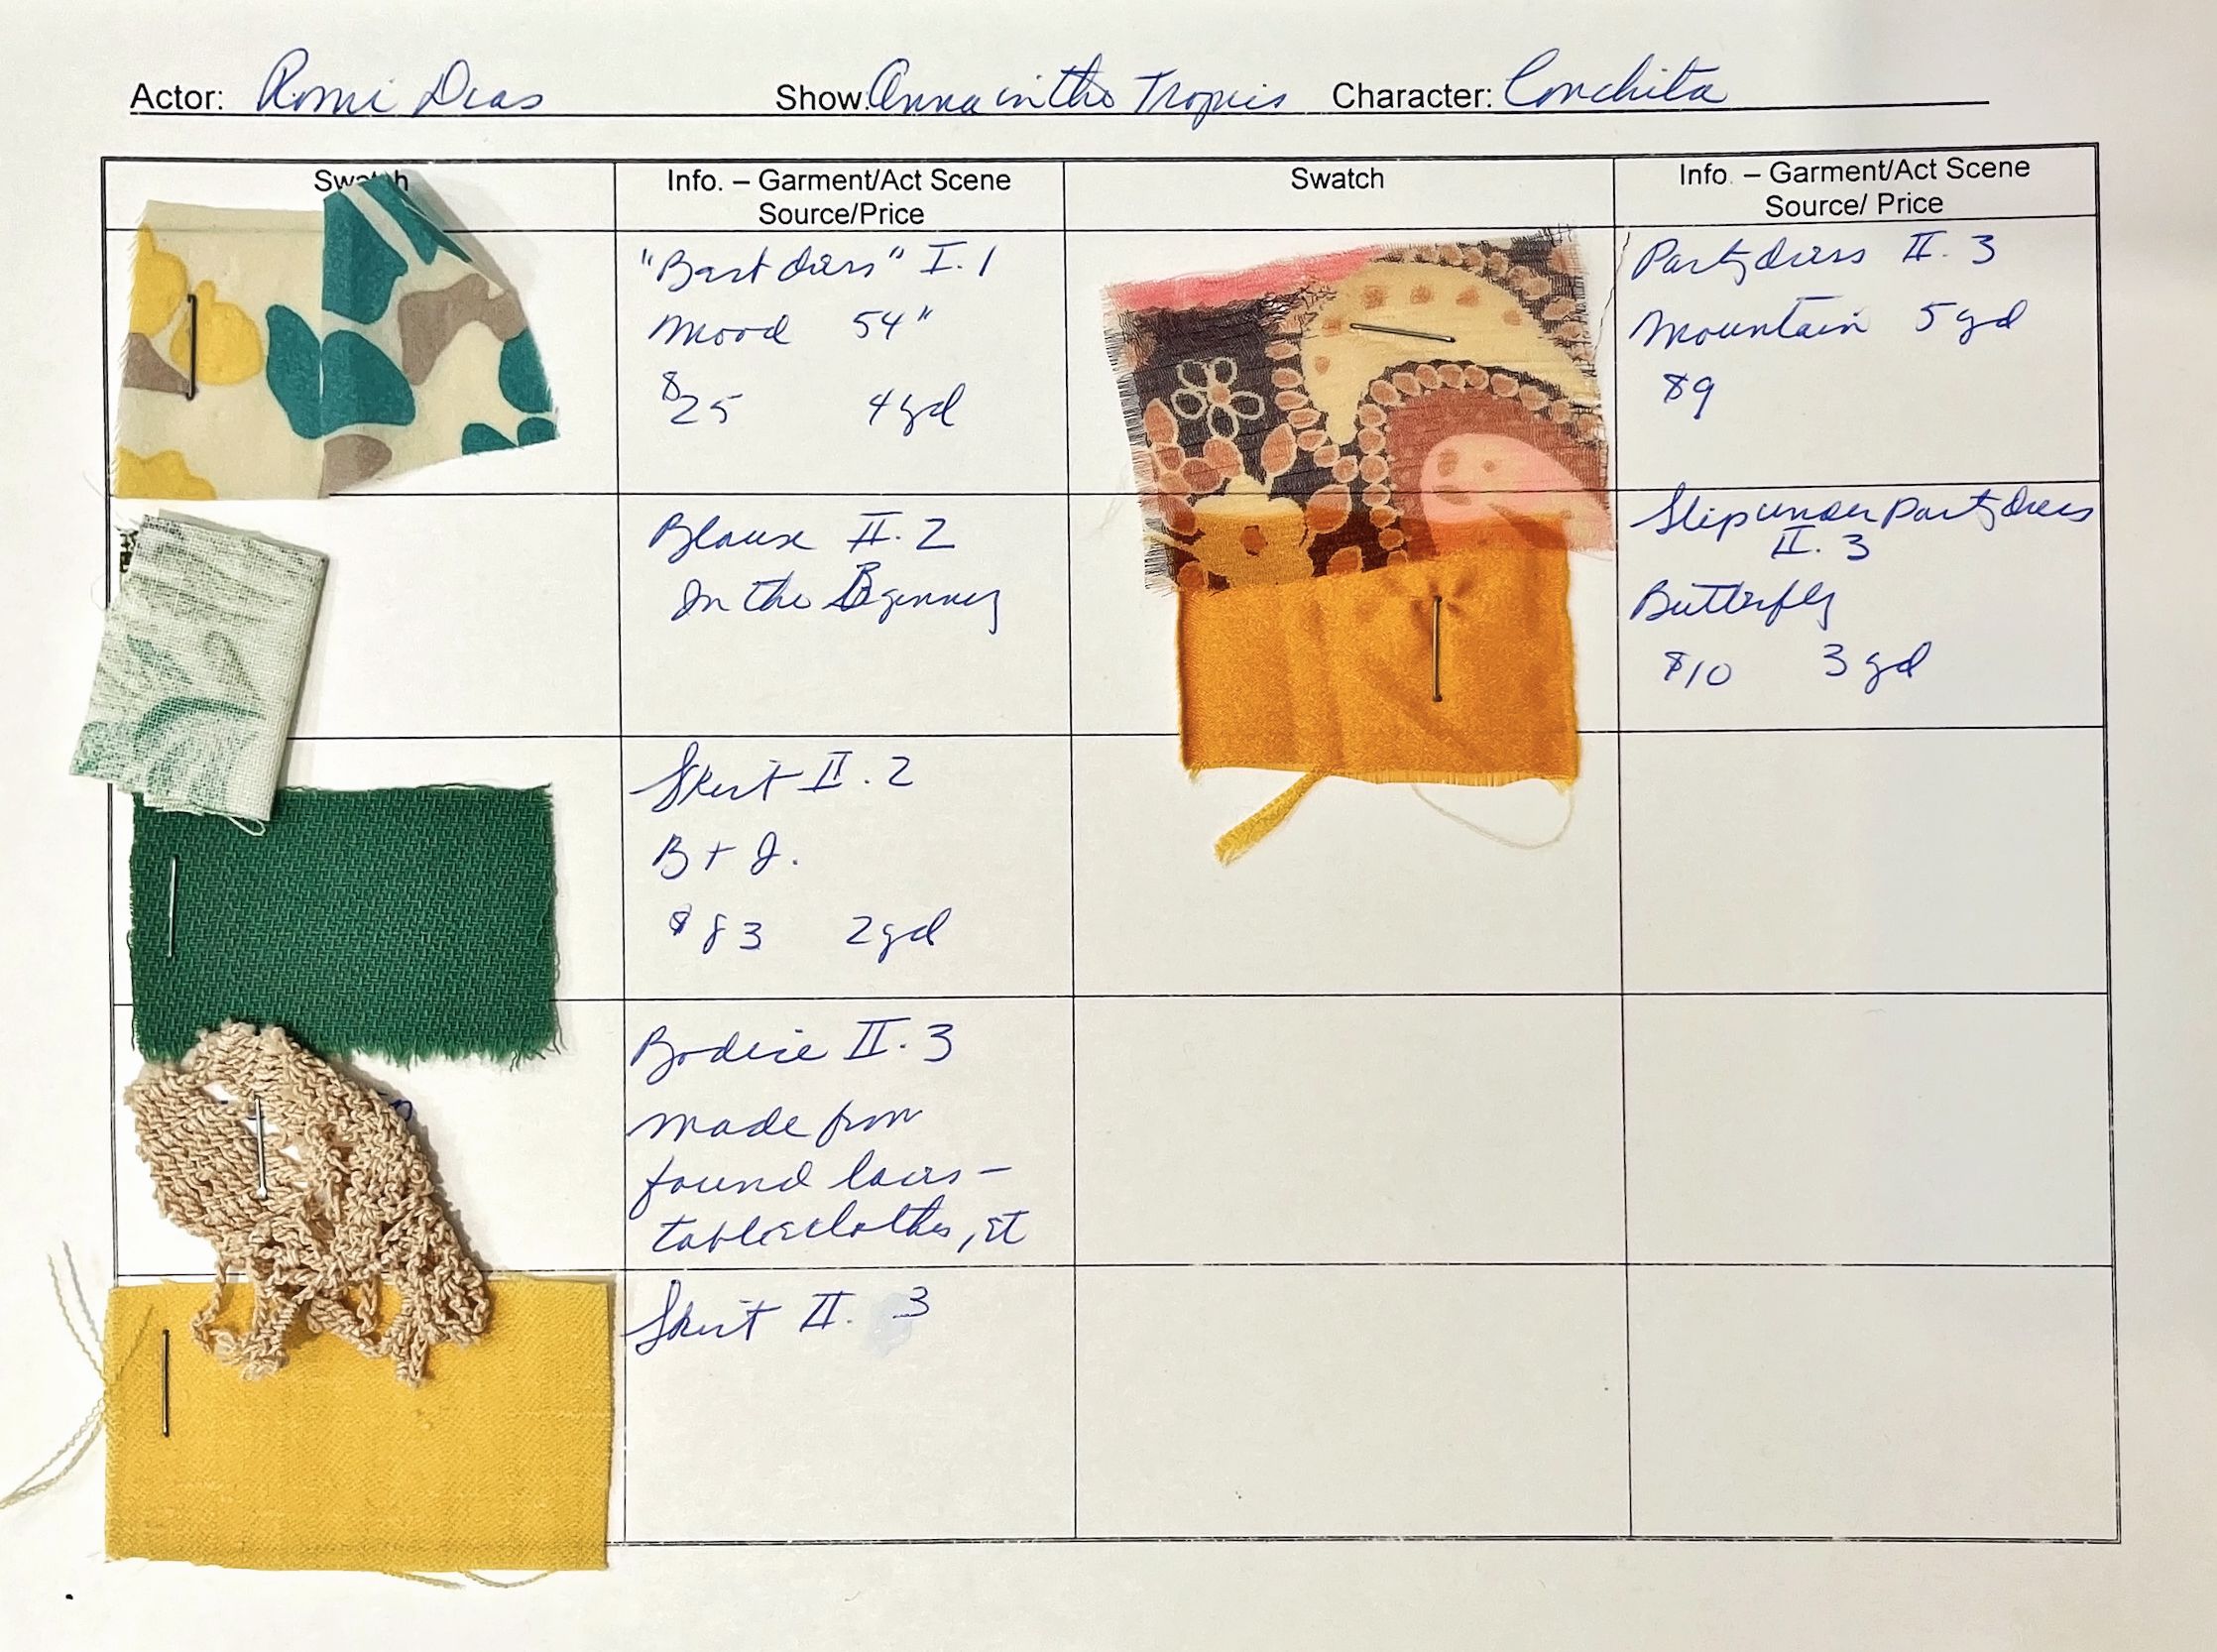 Actor: Romi Dias Show: Anna in the Tropics Character: Conchita
Swatch
Info. – Garment/Act Scene
Source/Price
Swatch
Info. – Garment/Act Scene
Source/ Price
"Bast dress" I.1
Mood 54"
$25 4 yd
Party dress II.3
Mountain 5 yd
$9
Blouse II.2
In the Beginning
Slip under party dress
II.3
Butterfly
$10 3 yd
Skirt II.2
B + J.
$83 2 yd
Bodice II.3
made from
found laces –
tableclothes, et
Skirt II. 3